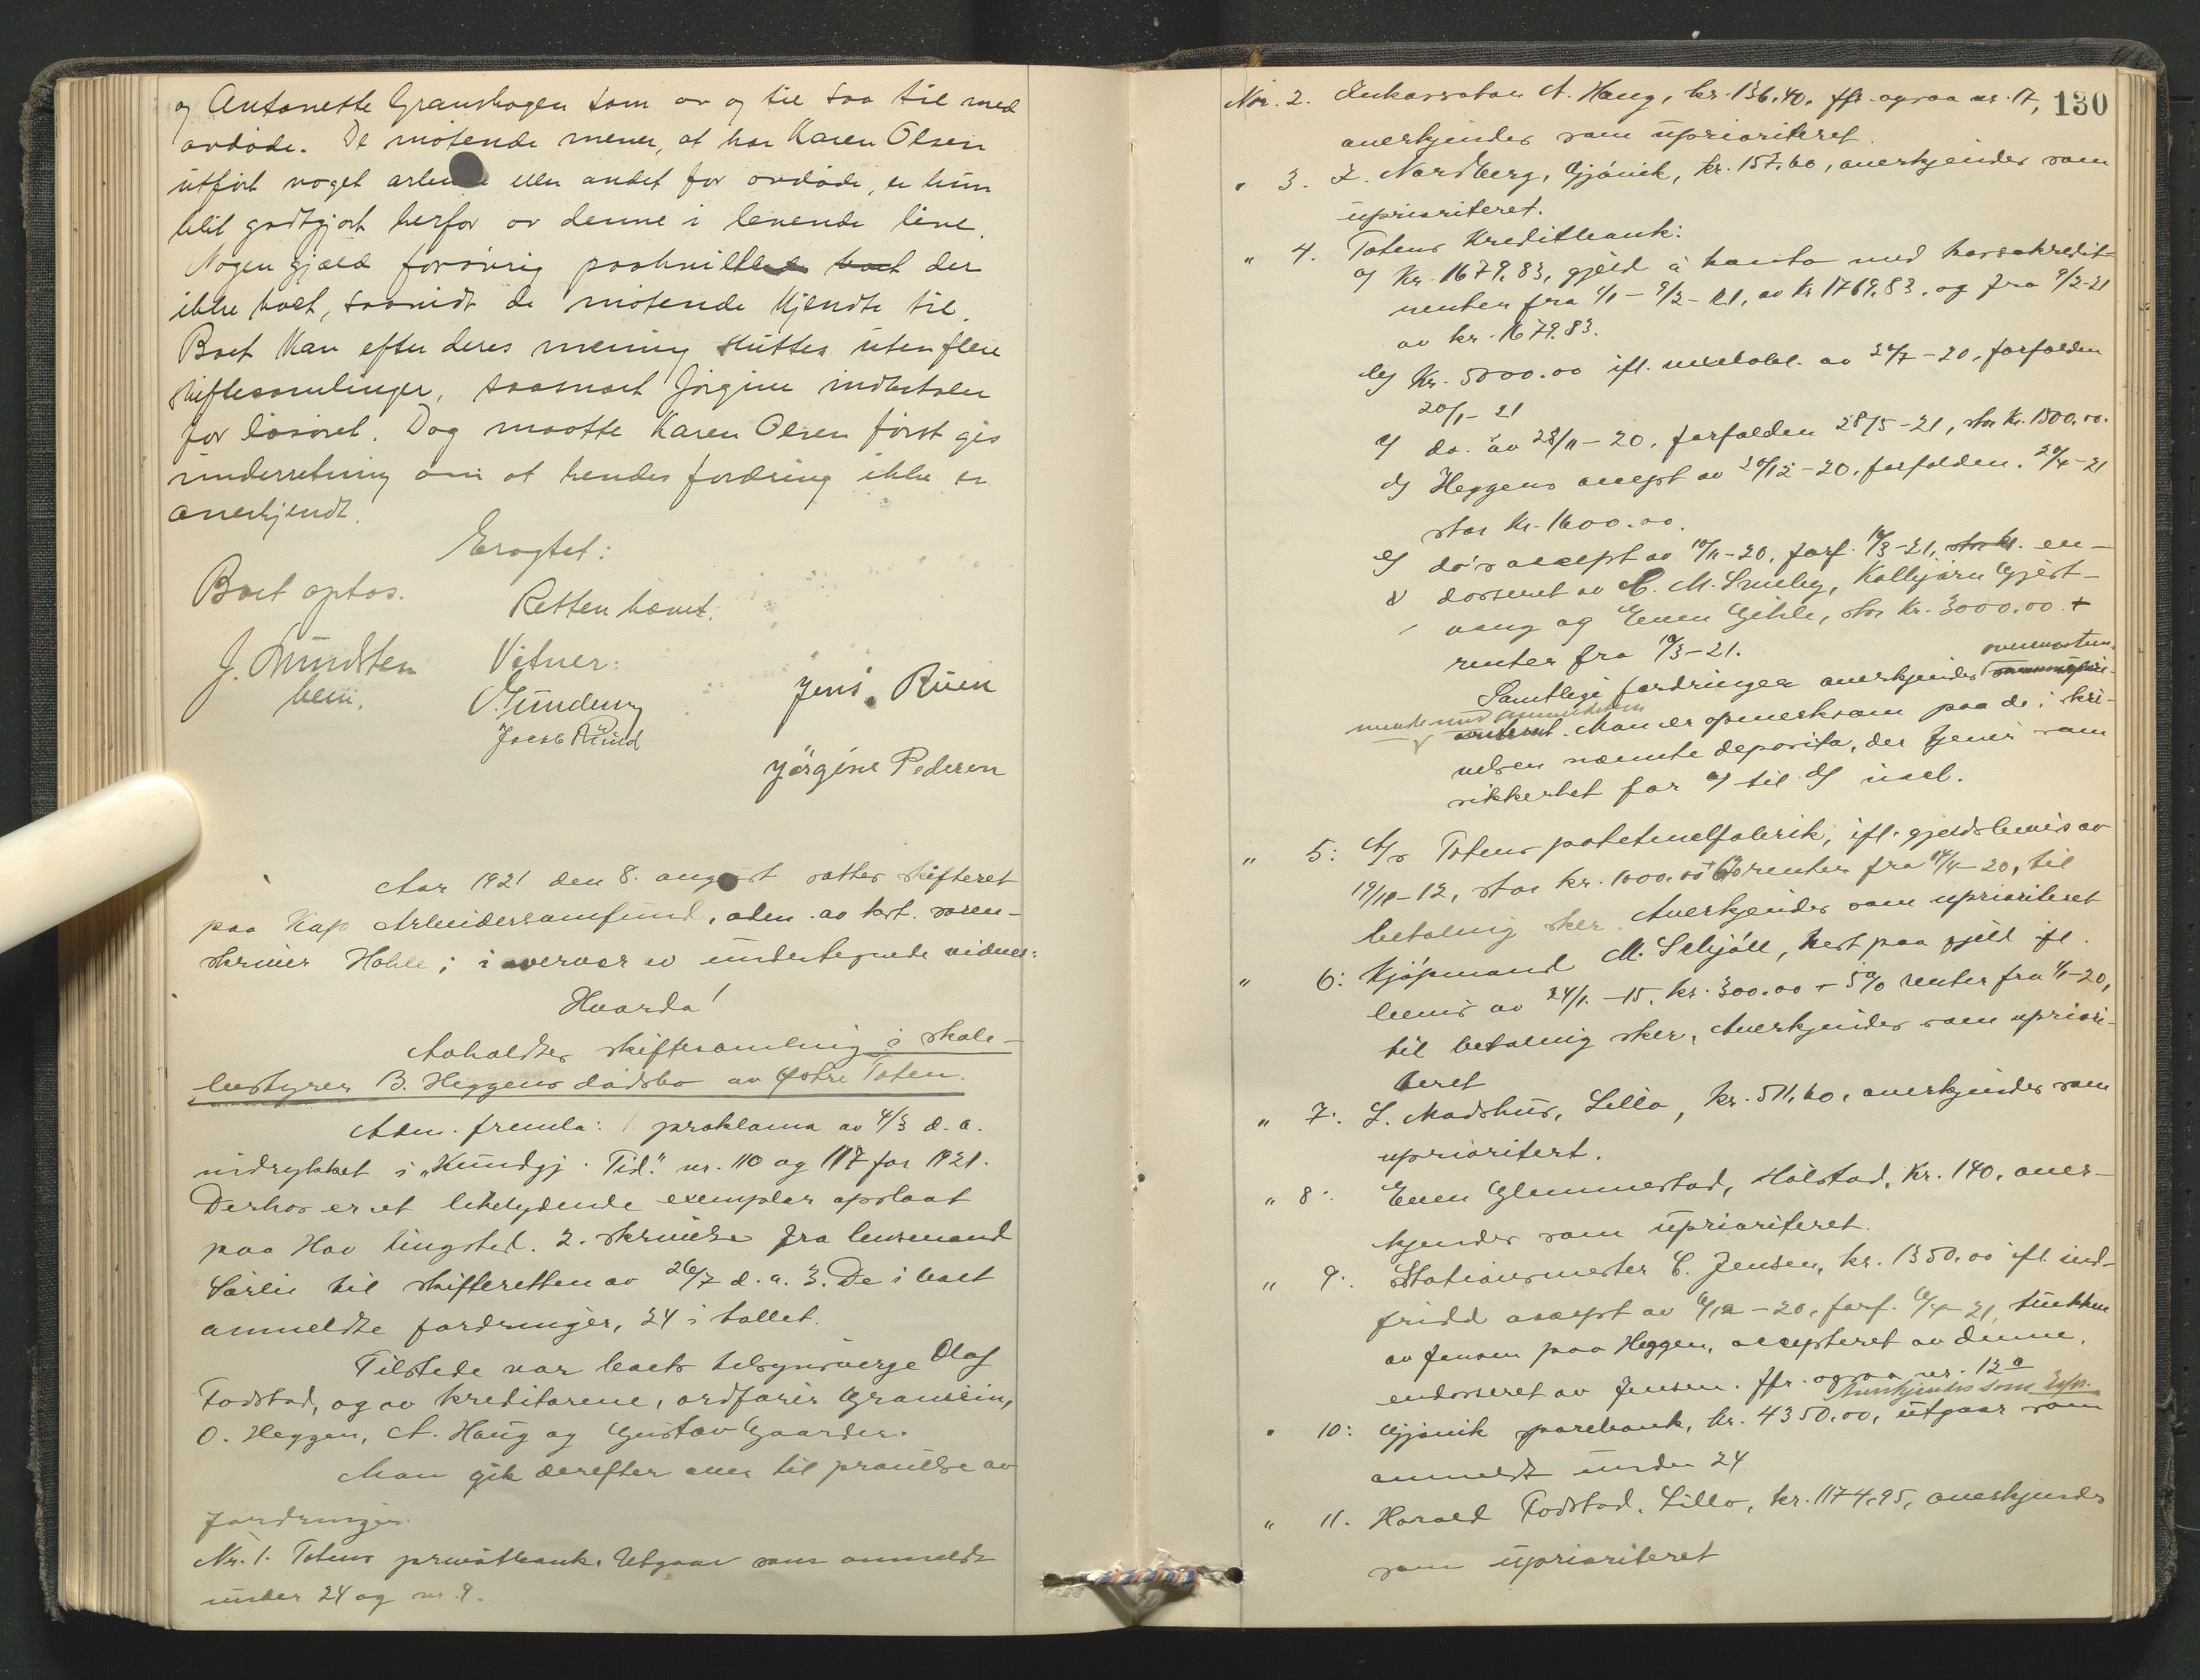 og Antonette Granshagen som av og til saa til med
avdøde. De møtende mener, at har Karen Olsen
utført noget arbeide eller andet for avdøde, er hun
blit godtgjort herfor av denne i levende live.
Nogen gjæld forøvrig paahviler der
ikke boet, saavidt de møtende kjendte til.
Boet kan efter deres mening sluttes uten flere
skiftesamlinger, saasnart Jørgine indbetaler
for løsøret. Dog maatte Karen Olsen først gis
underretning om at hendes fordring ikke er
anerkjendt.
Eragtet:
Boet optas.
Retten hævet.
J. Sundsten
bem.
Vitner:
Jens Ruen
Jacob Rund
Jørgine Pedersen
Aar 1921 den 8. august sattes skifteret
paa Kap Arbeidersamfund, adm. av kst. soren-
skriver Hohle; i overvær av undertegnede vidner:
Hvorda!
Avholdtes skiftesamling i skole-
bestyrer B. Heggens dødsbo av Østre Toten.
Adm. fremla: 1 proklama av 4/3 d.a.
indrykket i "Kundgj. Tid." nr. 110 og 117 for 1921.
Derhos er et likelydende exemplar opslaat
paa Hov tingsted. 2. skrivelse fra lensmand
Sørlie til skifteretten av 26/7 d.a. 3. De i boet
anmeldte fordringer, 24 i tallet.
Tilstede var boets tilsynsverge Olaf
Fodstad, og av kreditorene, ordfører Granlien,
O. Heggen, A. Haug og Gustav Gaarder.
Man gik derefter over til prøvelse av
fordringer.
Nr. 1. Totens privatbank. Utgaar som anmeldt
under 24 og nr. 9.
130
Nr. 2. Inkassator A. Haug, kr. 136.40. jfr. ogsaa nr. 17,
anerkjendes som uprioriteret.
" 3. Z. Nordberg, Gjøvik, kr. 157.60, anerkjendes som
uprioriteret.
" 4. Totens Kreditbank:
a) Kr. 1679.83, gjeld à konto med kassakredit-
renter fra 1/1 - 9/2 - 21, av kr 1769.83, og fra 9/2-21
av kr. 1679.83.
b) Kr. 5000.00 ifl. vekselobl. av 20/7 - 20, forfalden
20/1 - 21
c) do. av 28/11 - 20, forfalden 28/5 - 21, stor kr. 1500.00.
d) Heggens accept av 20/12 - 20, forfalden 20/4 - 21
stor kr. 1600.00.
e) do's accept av 10/11 - 20, forf. 10/3 - 21, stor kr. en-
dosseret av C. M. Smeby, Kolbjørn Gjest-
vang og Even Gihle, stor kr. 3000.00 +
renter fra 10/3 - 21.
overensstem-
Samtlige fordringer anerkjendes
mende med anmeldelsen
Man er opmerksom paa de i skri-
velsen nævnte deposita, der tjener som
sikkerhet for a) til d) incl.
" 5: A/s Totens potetmelfabrik, ifl. gjeldsbevis av
19/10 - 12, stor kr. 1000.00 + renter fra 14/4 - 20, til
betaling sker. Anerkjendes som uprioriteret
" 6: Kjøpmand M. Schjøll, rest paa gjeld ifl.
bevis av 24/1. - 15, kr. 300.00 + 5% renter fra 1/1 - 20,
til betaling sker, Anerkjendes som upriori-
teret
" 7: L. Madshus, Lillo, kr. 511.60, anerkjendes som
uprioritert.
" 8: Even Glemmestad, Hølstad, kr. 140, aner-
kjendes som uprioriteret.
" 9: Stationsmester C. Jensen, kr. 1350.00 ifl. ind-
fridd accept av 6/12 - 20, forf. 6/4 - 21, trukken
av Jensen paa Heggen, accepteret av denne,
endosseret av Jensen. jfr. ogsaa nr. 13 a
Anerkjendes som upr.
" 10: Gjøvik sparebank, kr. 4350.00, utgaar som
anmeldt under 24
" 11. Harald Fodstad, Lillo, kr. 1174.95, anerkjendes
som uprioriteret